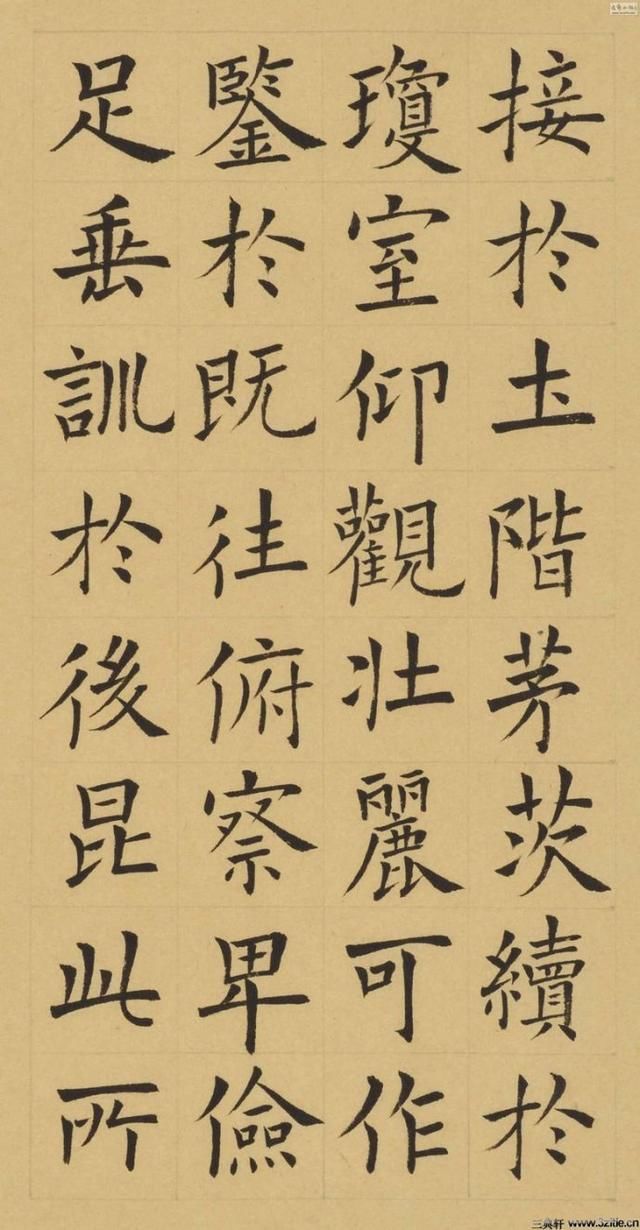 接於土階茅茨續於
瓊室仰觀壯麗可作
鑒於既往俯察卑儉
足垂訓於後昆此所
三典轩 www.3zitie.cn